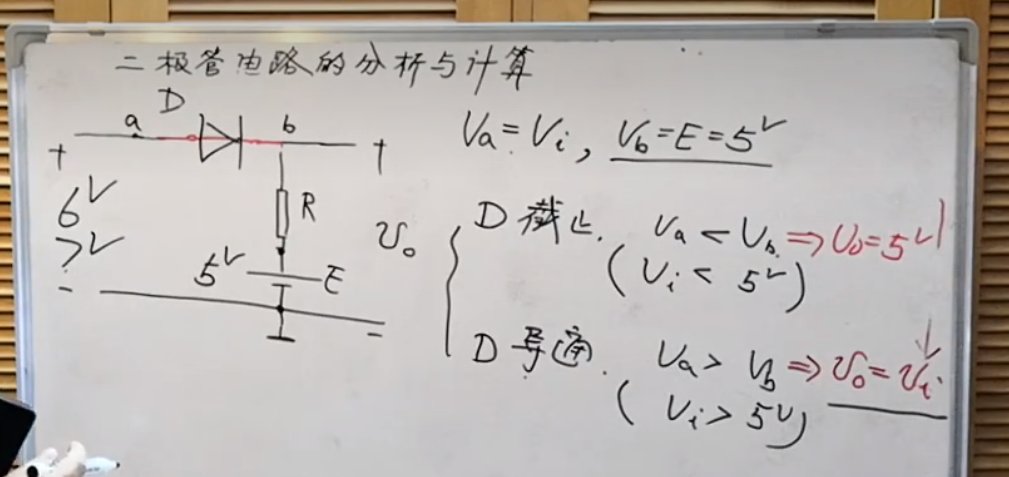 二极管电路的分析与计算
D
a b
+ +
6V
7V
R
υo
5V E
- -
Va=Vi, Vb=E=5V
D 截止. Va < Vb ⇒ Uo=5V
(Vi < 5V)
D 导通. Va > Vb ⇒ υo=υi
(Vi > 5V)